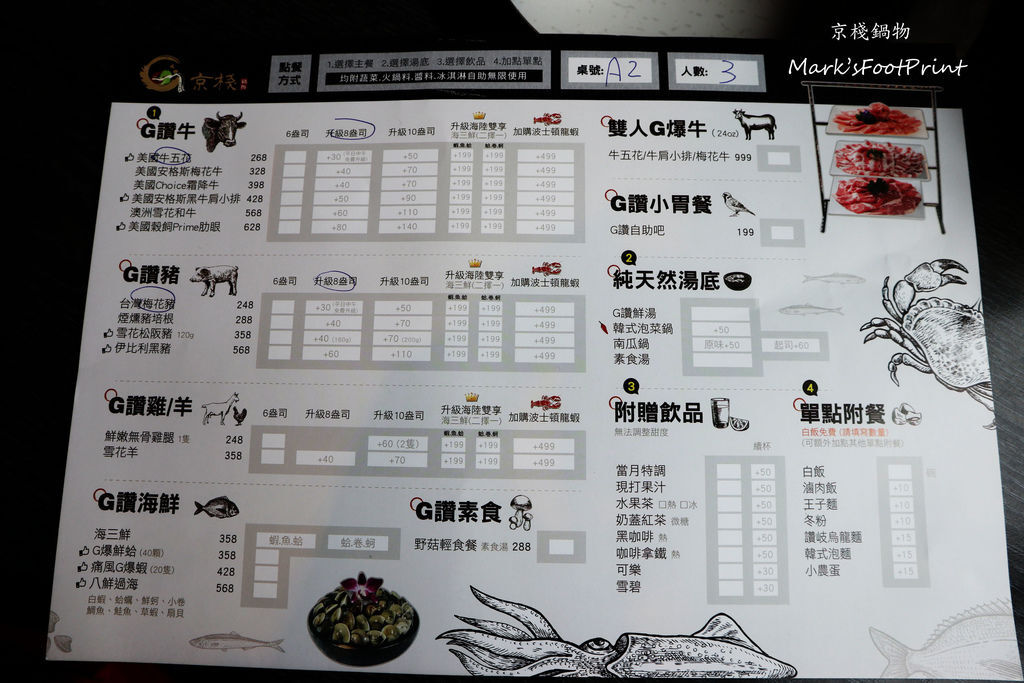 京棧鍋物
Mark'sFootPrint
京棧
點餐方式
1.選擇主餐 2.選擇湯底 3.選擇飲品 4.加點單點
均附蔬菜.火鍋料.醬料.冰淇淋自助無限使用
桌號: A2
人數: 3
1
G讚牛
6盎司 升級8盎司 升級10盎司 升級海陸雙享 海三鮮(二擇一) 加購波士頓龍蝦
蝦魚蛤 蛤卷蚵
美國牛五花 268 +30 (平日中午免費升級) +50 +199 +199 +499
美國安格斯梅花牛 328 +40 +70 +199 +199 +499
美國Choice霜降牛 398 +40 +70 +199 +199 +499
美國安格斯黑牛肩小排 428 +50 +90 +199 +199 +499
澳洲雪花和牛 568 +60 +110 +199 +199 +499
美國穀飼Prime肋眼 628 +80 +140 +199 +199 +499
G讚豬
6盎司 升級8盎司 升級10盎司 升級海陸雙享 海三鮮(二擇一) 加購波士頓龍蝦
蝦魚蛤 蛤卷蚵
台灣梅花豬 248 +30 (平日中午免費升級) +50 +199 +199 +499
煙燻豬培根 288 +40 +70 +199 +199 +499
雪花松阪豬 120g 358 +40 (160g) +70 (200g) +199 +199 +499
伊比利黑豬 568 +60 +110 +199 +199 +499
G讚雞/羊
6盎司 升級8盎司 升級10盎司 升級海陸雙享 海三鮮(二擇一) 加購波士頓龍蝦
蝦魚蛤 蛤卷蚵
鮮嫩無骨雞腿 1隻 248 +60 (2隻) +199 +199 +499
雪花羊 358 +40 +70 +199 +199 +499
G讚海鮮
海三鮮 358 蝦.魚.蛤 蛤.卷.蚵
G爆鮮蛤 (40顆) 358
痛風G爆蝦 (20隻) 428
八鮮過海 568
白蝦、蛤蠣、鮮蚵、小卷
鯛魚、鮭魚、草蝦、扇貝
G讚素食
野菇輕食餐 素食湯 288
雙人G爆牛 (24oz)
牛五花/牛肩小排/梅花牛 999
G讚小胃餐
G讚自助吧 199
2
純天然湯底
G讚鮮湯
韓式泡菜鍋 +50
南瓜鍋 原味+50 起司+60
素食湯
3
附贈飲品
無法調整甜度
續杯
當月特調 +50
現打果汁 +50
水果茶 □熱 □冰 +50
奶蓋紅茶 微糖 +50
黑咖啡 熱 +50
咖啡拿鐵 熱 +50
可樂 +30
雪碧 +30
4
單點附餐
白飯免費 (請填寫數量)
(可額外加點其他單點附餐)
白飯 碗
滷肉飯 +10
王子麵 +10
冬粉 +10
讚岐烏龍麵 +15
韓式泡麵 +15
小農蛋 +15